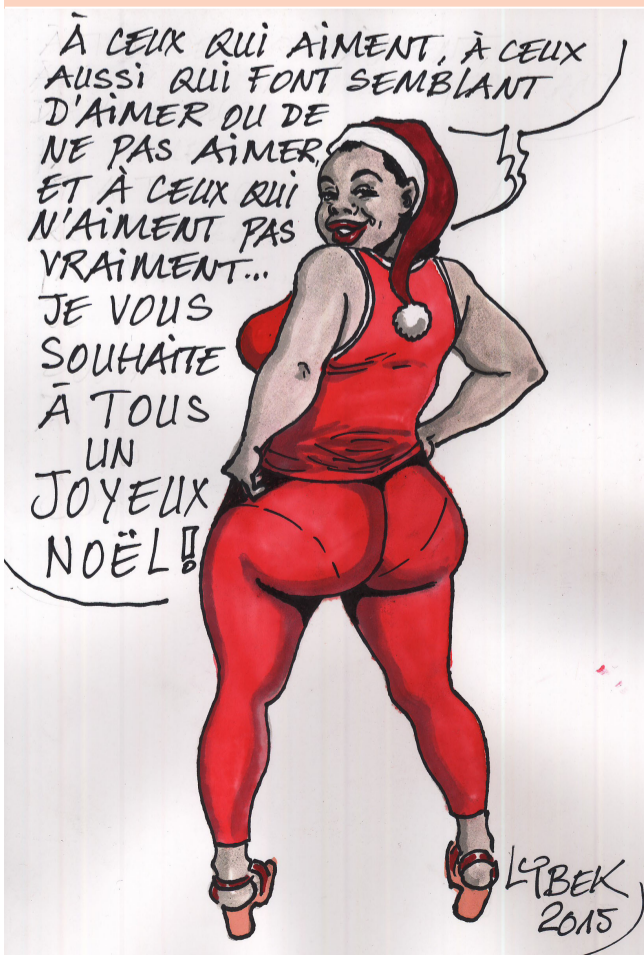 À CEUX QUI AIMENT, À CEUX
AUSSI QUI FONT SEMBLANT
D'AIMER OU DE
NE PAS AIMER,
ET À CEUX QUI
N'AIMENT PAS
VRAIMENT...
JE VOUS
SOUHAITE
À TOUS
UN
JOYEUX
NOËL!
LYBEK
2015